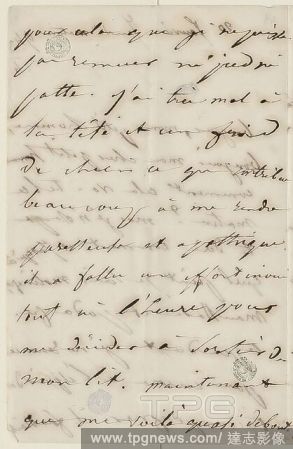 pour cela que je ne puisse
pas remuer ni pied ni
patte. j'ai très mal à
la tête et un froid
de chien ce qui contribue
beaucoup à me rendre
paresseuse et apathique
il a fallu un effort inouï
tout à l'heure pour
me décider à sortir de
mon lit. maintenant
que me voilà quasi debout
TPG
www.tpgnews.com / 達志影像